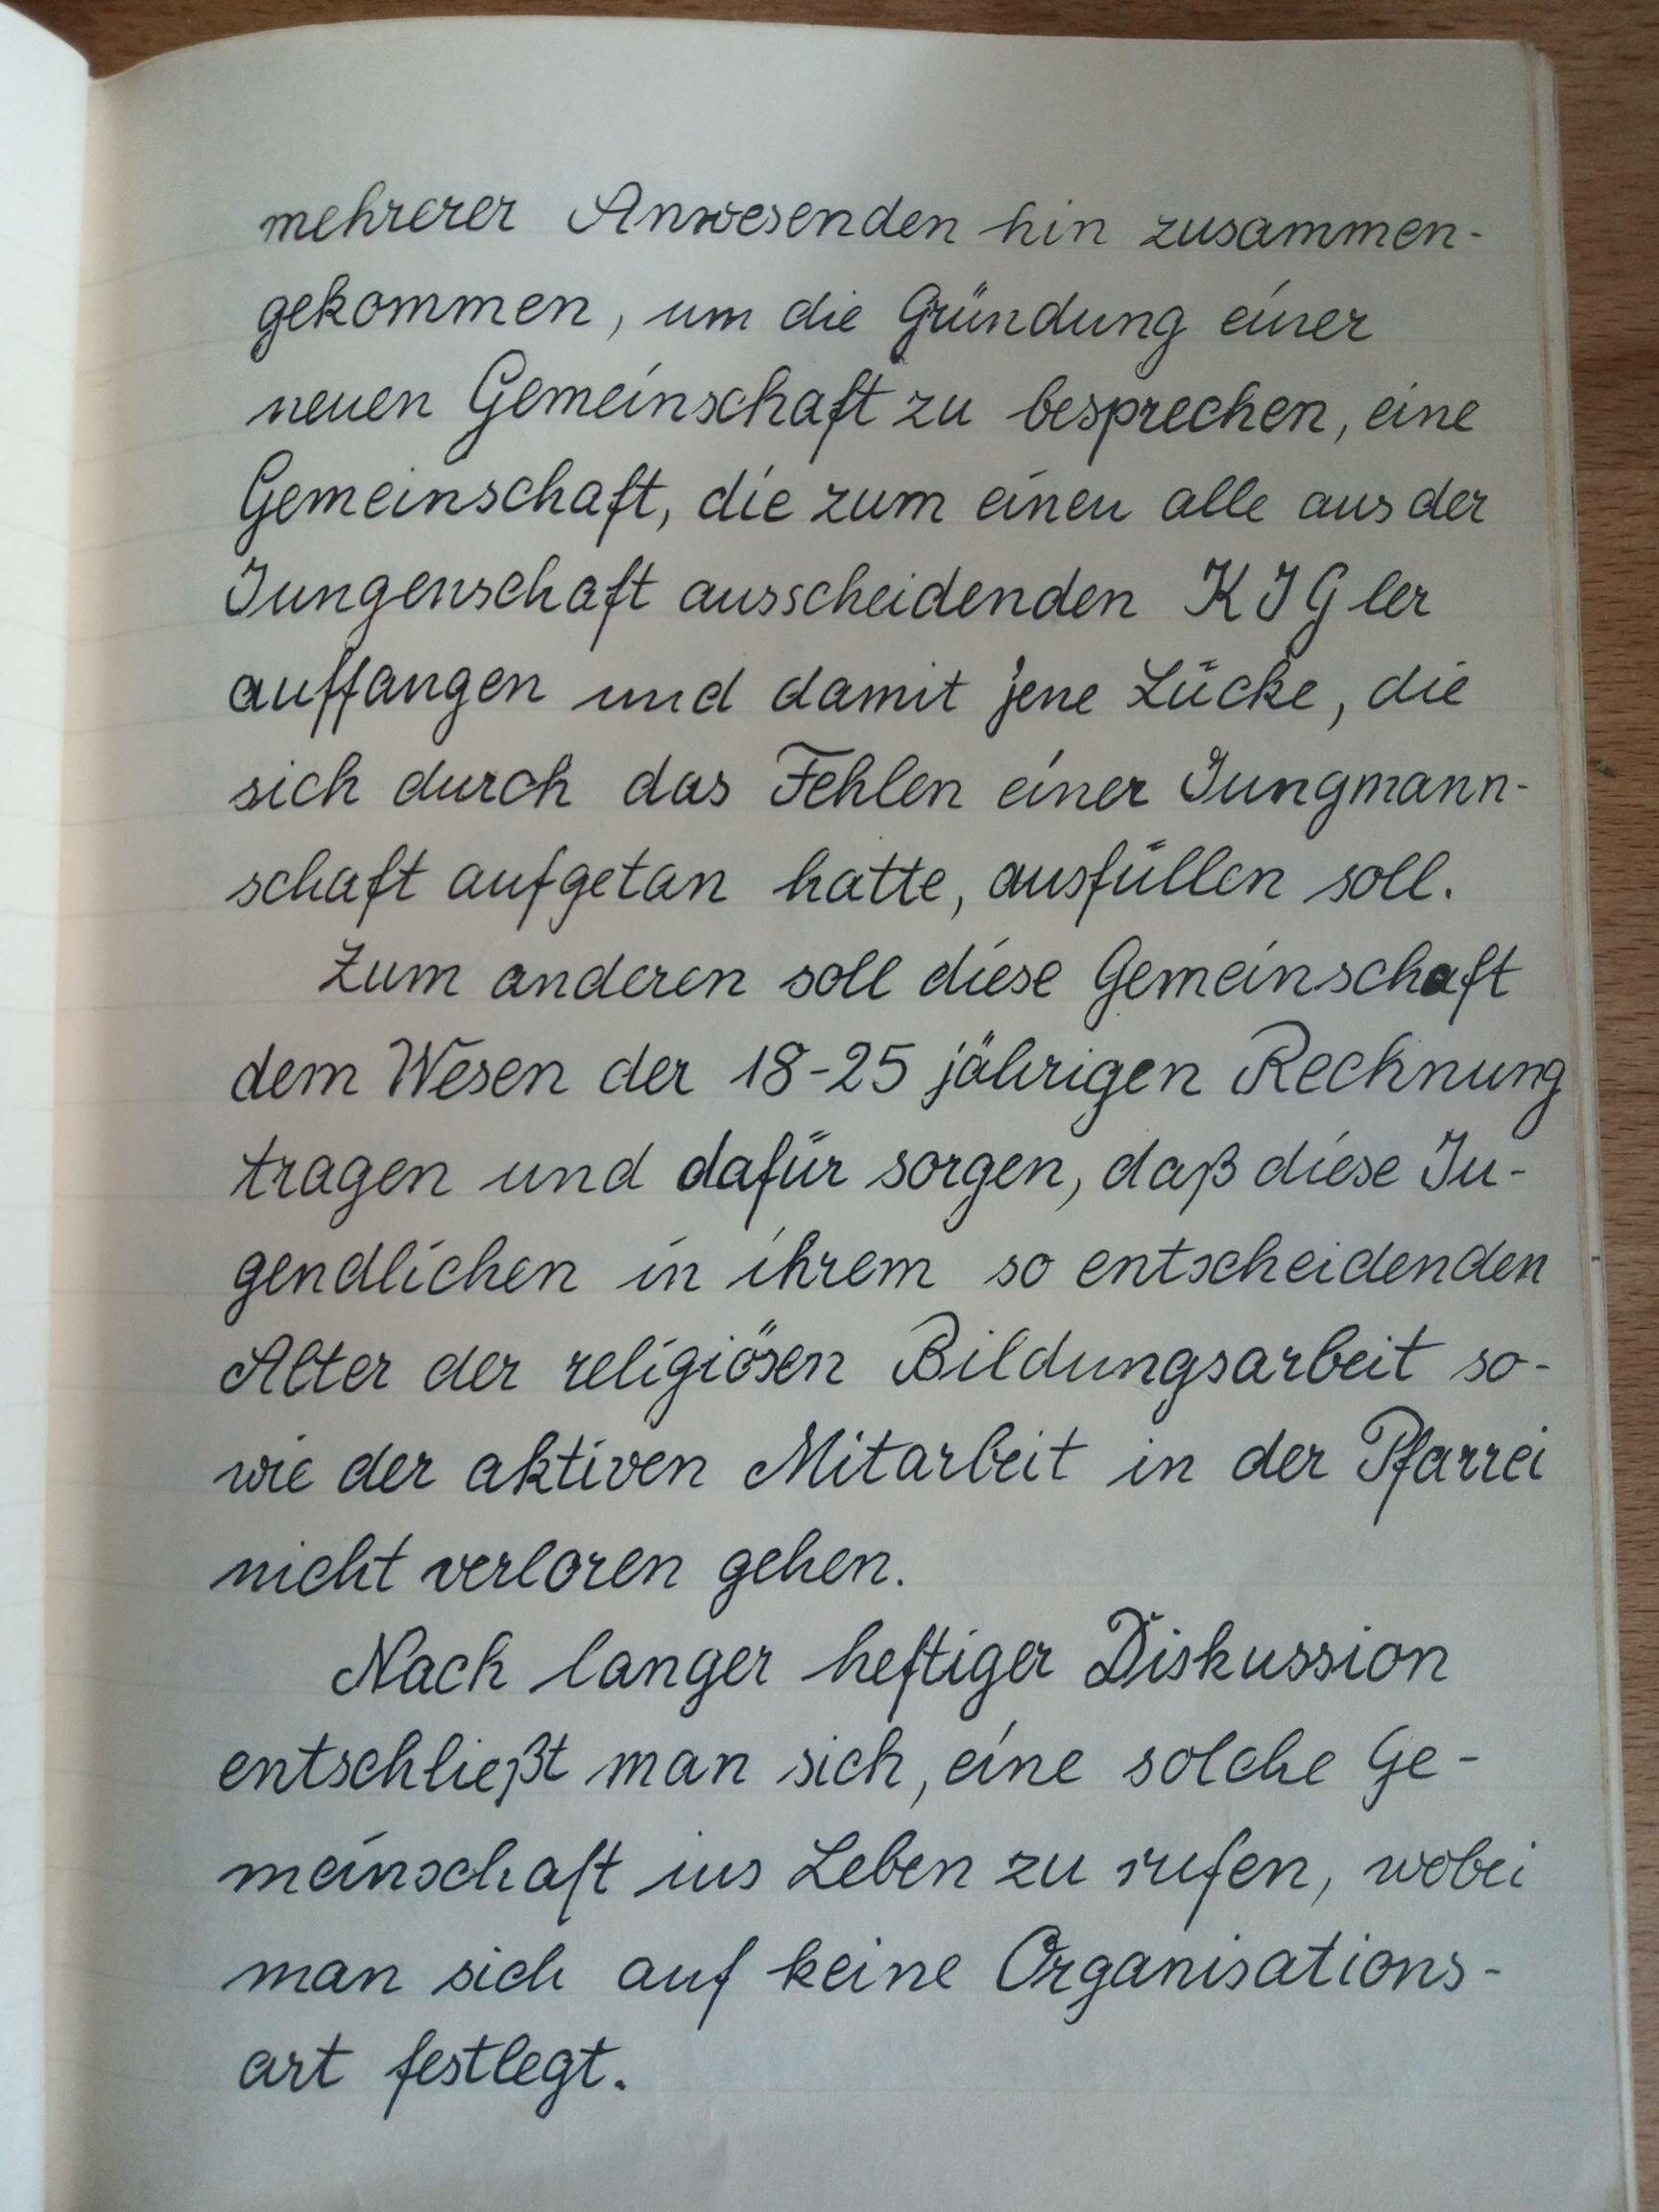 mehrerer Anwesenden hin zusammen-
gekommen, um die Gründung einer
neuen Gemeinschaft zu besprechen, eine
Gemeinschaft, die zum einen alle aus der
Jungenschaft ausscheidenden KJGler
auffangen und damit jene Lücke, die
sich durch das Fehlen einer Jungmann-
schaft aufgetan hatte, ausfüllen soll.
Zum anderen soll diese Gemeinschaft
dem Wesen der 18-25 jährigen Rechnung
tragen und dafür sorgen, daß diese Ju-
gendlichen in ihrem so entscheidenden
Alter der religiösen Bildungsarbeit so-
wie der aktiven Mitarbeit in der Pfarrei
nicht verloren gehen.
Nach langer heftiger Diskussion
entschließt man sich, eine solche Ge-
meinschaft ins Leben zu rufen, wobei
man sich auf keine Organisations-
art festlegt.